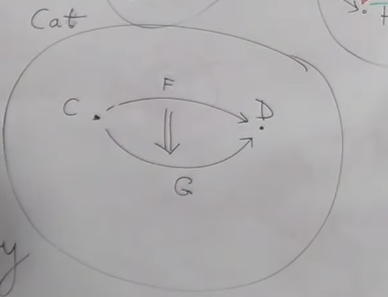 Cat
F
C D
G
y